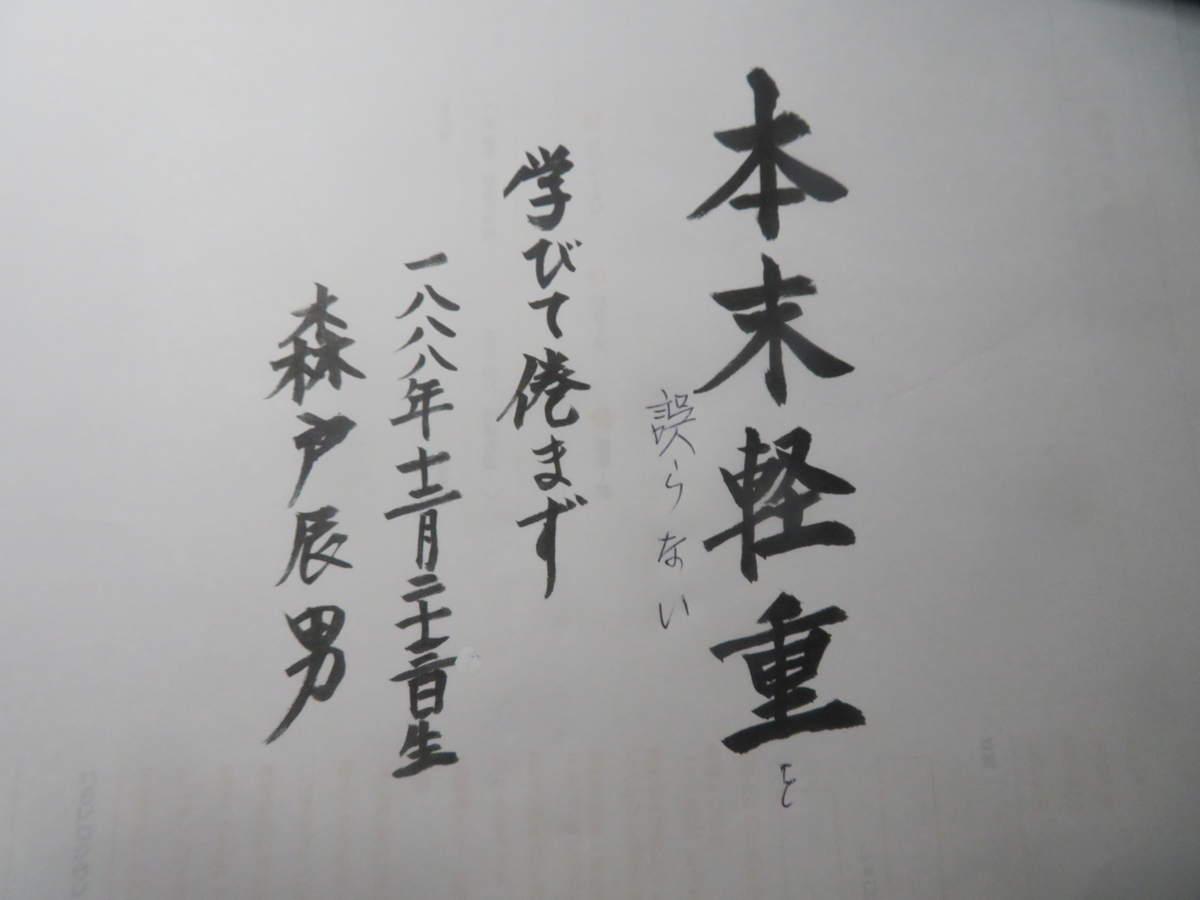 本末軽重を
誤らない
学びて倦まず
一八八八年十二月二十三日生
森戸辰男